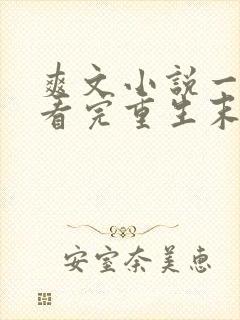 爽文小说一
看完重生末
安室奈美恵